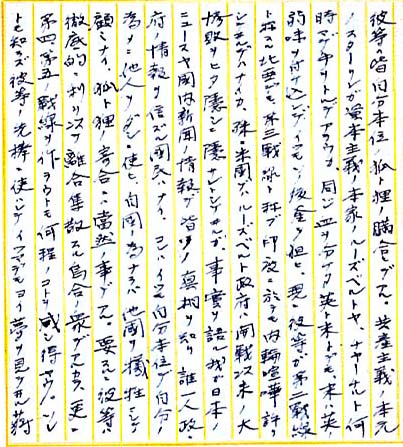 彼等ハ皆自分本位ノ狐ト狸ノ騙合ヒデアル。共産主義ノ本元
ノスターリンガ資本主義ノ本家ノルーズベルトヤ、チャーチルト何
時マデ手ヲトルデアラウカ。同ジ血ヲ分ケタ英ト米トデモ、米ハ英
弱味ヲ付ケ込ンデイツモ後釜ヲ担ヒ、現ニ彼等ガ第二戦線
ト称シ北亜ヲ第三戦線ト称ブ印度ニ於テモ内輪喧嘩許リ
シテルデハナイカ。殊ニ米国ノルーズベルト政府ハ開戦以来ノ大
惨敗ヲヒタ隠シニ隠サントシテルガ、事実ヲ語ル我ガ日本ノ
ニュースヤ国内新聞ノ情報デ皆ハソノ真相ヲ知リ誰一人政
府ノ情報ヲ信ズル国民ハナイ。己ハイツモ自分本位デ自分ノ
為メニ他人ヲダシニ使ヒ、自国ノ為ナラバ他国ノ犠牲ヲ
顧ミナイ。狐ト狸ノ寄合ニハ当然ノ事デアル。要スルニ彼等ハ
徹底的ニ利ヲ以テ離合集散スル烏合ノ衆デアルカラ、更ニ
第四、第五ノ戦線ヲ作ラウトモ何程ノコトヲ成シ得ヤウソレ
トモ知ラズ彼等ノ先棒ニ使ハレテイツマデモヨイ夢ヲ見ヤウ